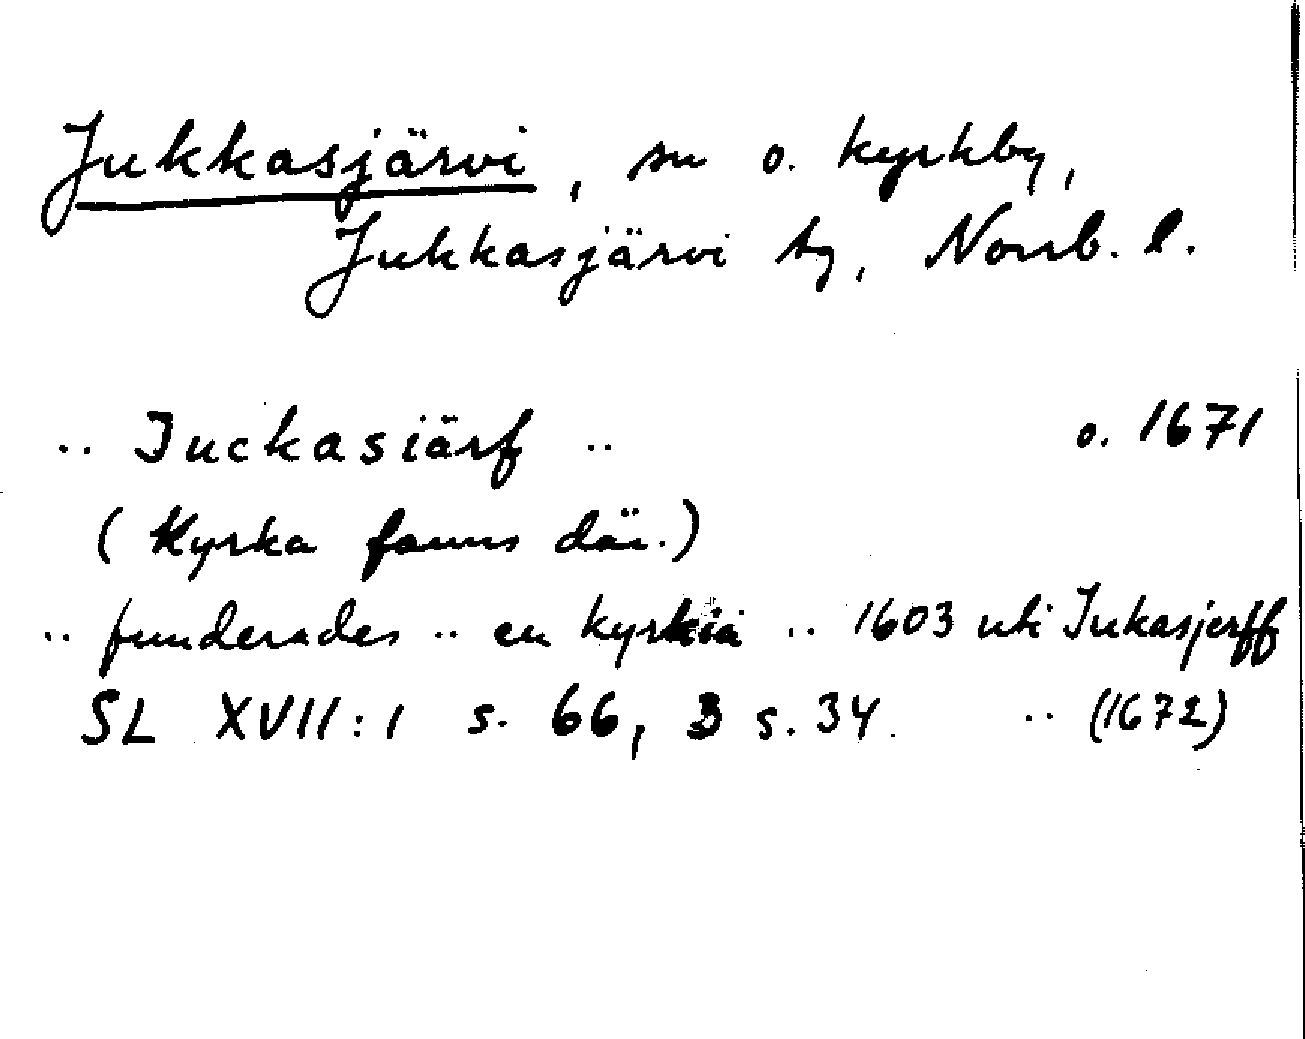 Jukkasjärvi, sn o. kyrkby,
Jukkasjärvi sn, Norrb. l.
.. Juckasiärf .. o. 1671
(Kyrka fanns där.)
.. funderades .. en kyrkia .. 1603 uti Jukasjerff
SL XVII:1 s. 66, 3 s. 34. .. (1672)